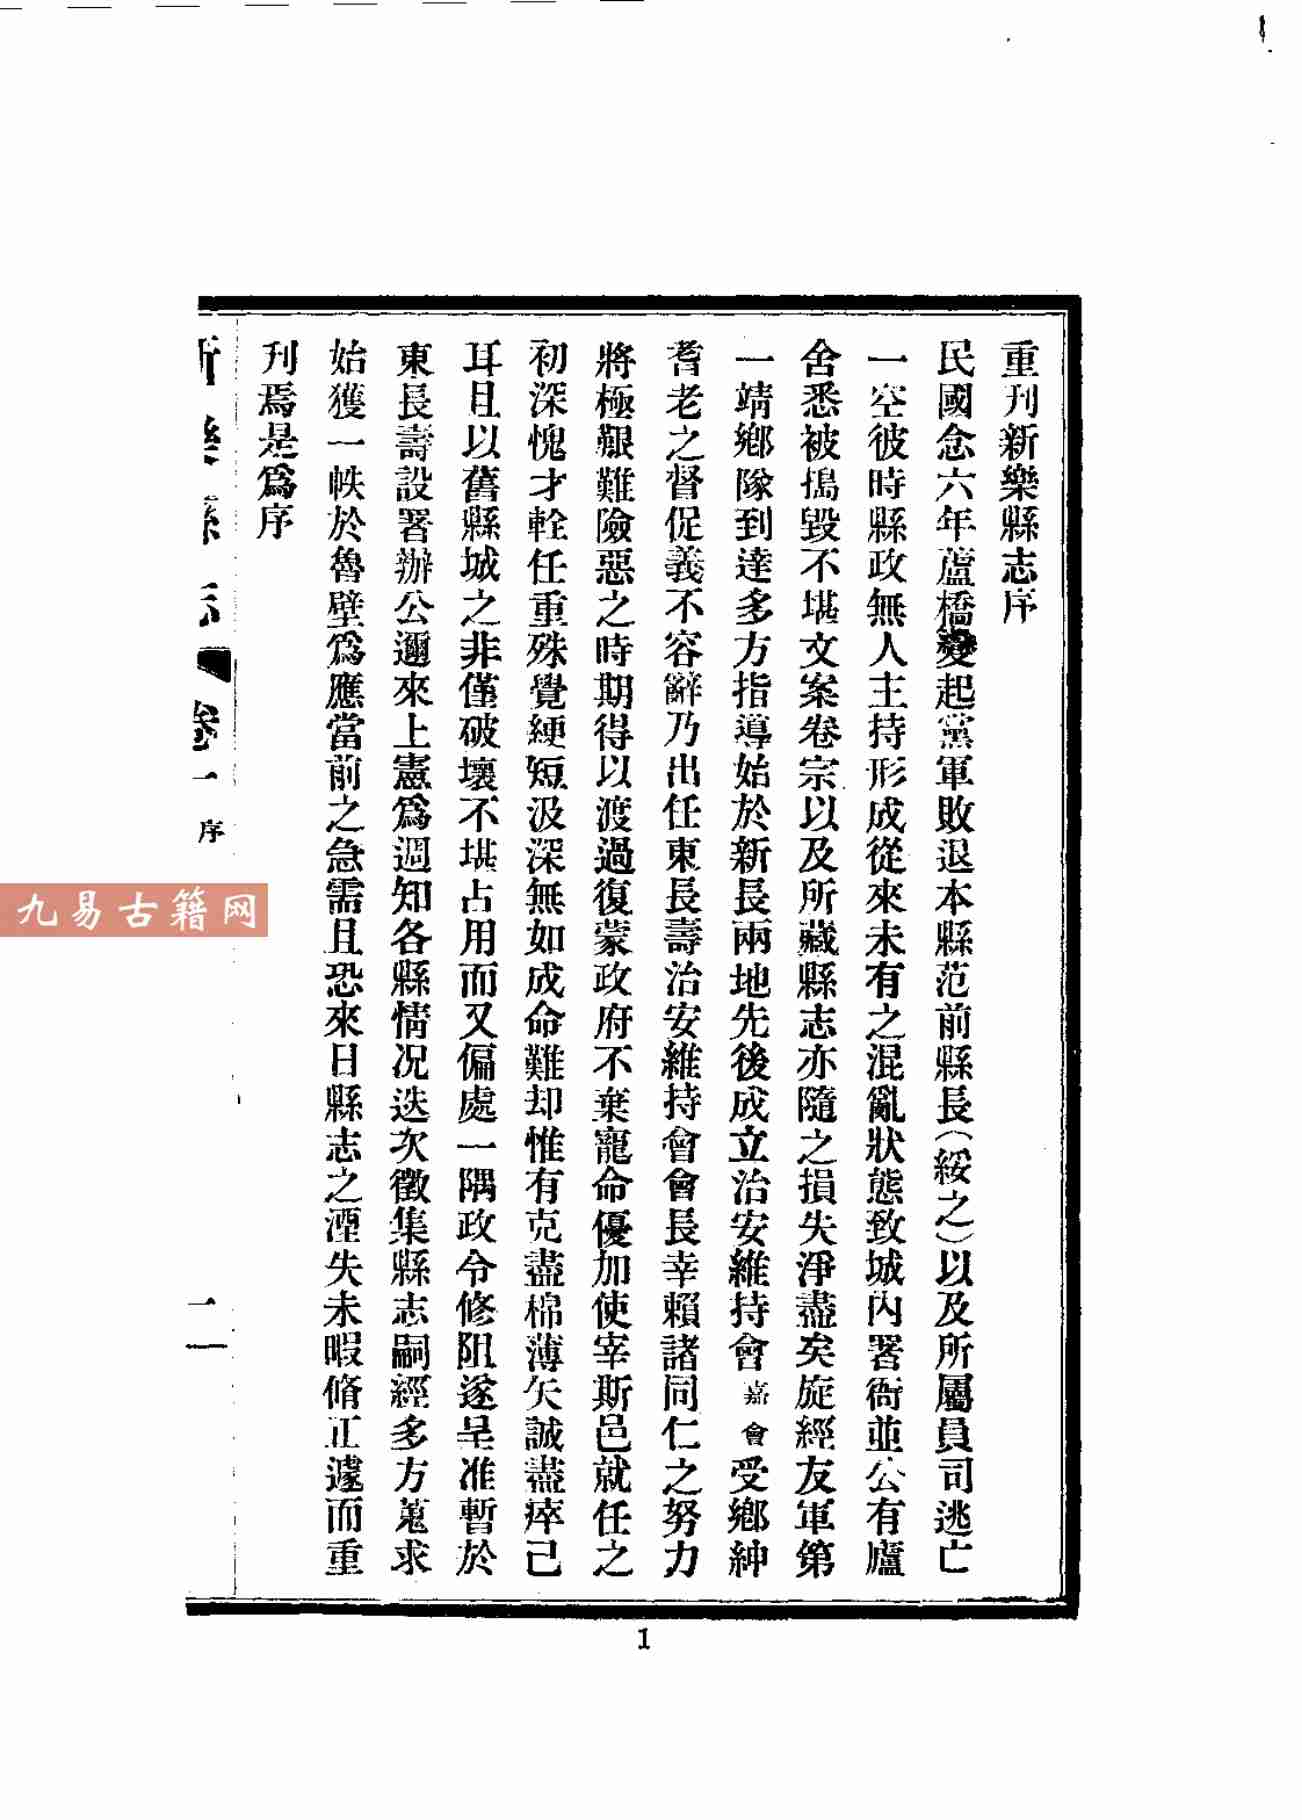 重刊新樂縣志序
民國念六年蘆橋變起黨軍敗退本縣范前縣長（綏之）以及所屬員司逃亡
一空彼時縣政無人主持形成從來未有之混亂狀態致城內署衙並公有廬
舍悉被搗毀不堪文案卷宗以及所藏縣志亦隨之損失淨盡矣旋經友軍第
一靖鄉隊到達多方指導始於新長兩地先後成立治安維持會嘉會受鄉紳
耆老之督促義不容辭乃出任東長壽治安維持會會長幸賴諸同仁之努力
將極艱難險惡之時期得以渡過復蒙政府不棄寵命優加使宰斯邑就任之
初深愧才輇任重殊覺綆短汲深無如成命難却惟有克盡棉薄矢誠盡瘁已
耳且以舊縣城之非僅破壞不堪占用而又偏處一隅政令修阻遂呈准暫於
東長壽設署辦公邇來上憲爲週知各縣情况迭次徵集縣志嗣經多方蒐求
始獲一帙於魯壁爲應當前之急需且恐來日縣志之湮失未暇脩正遽而重
刊焉是爲序
新樂縣志 卷一 序 一一
九易古籍网
1